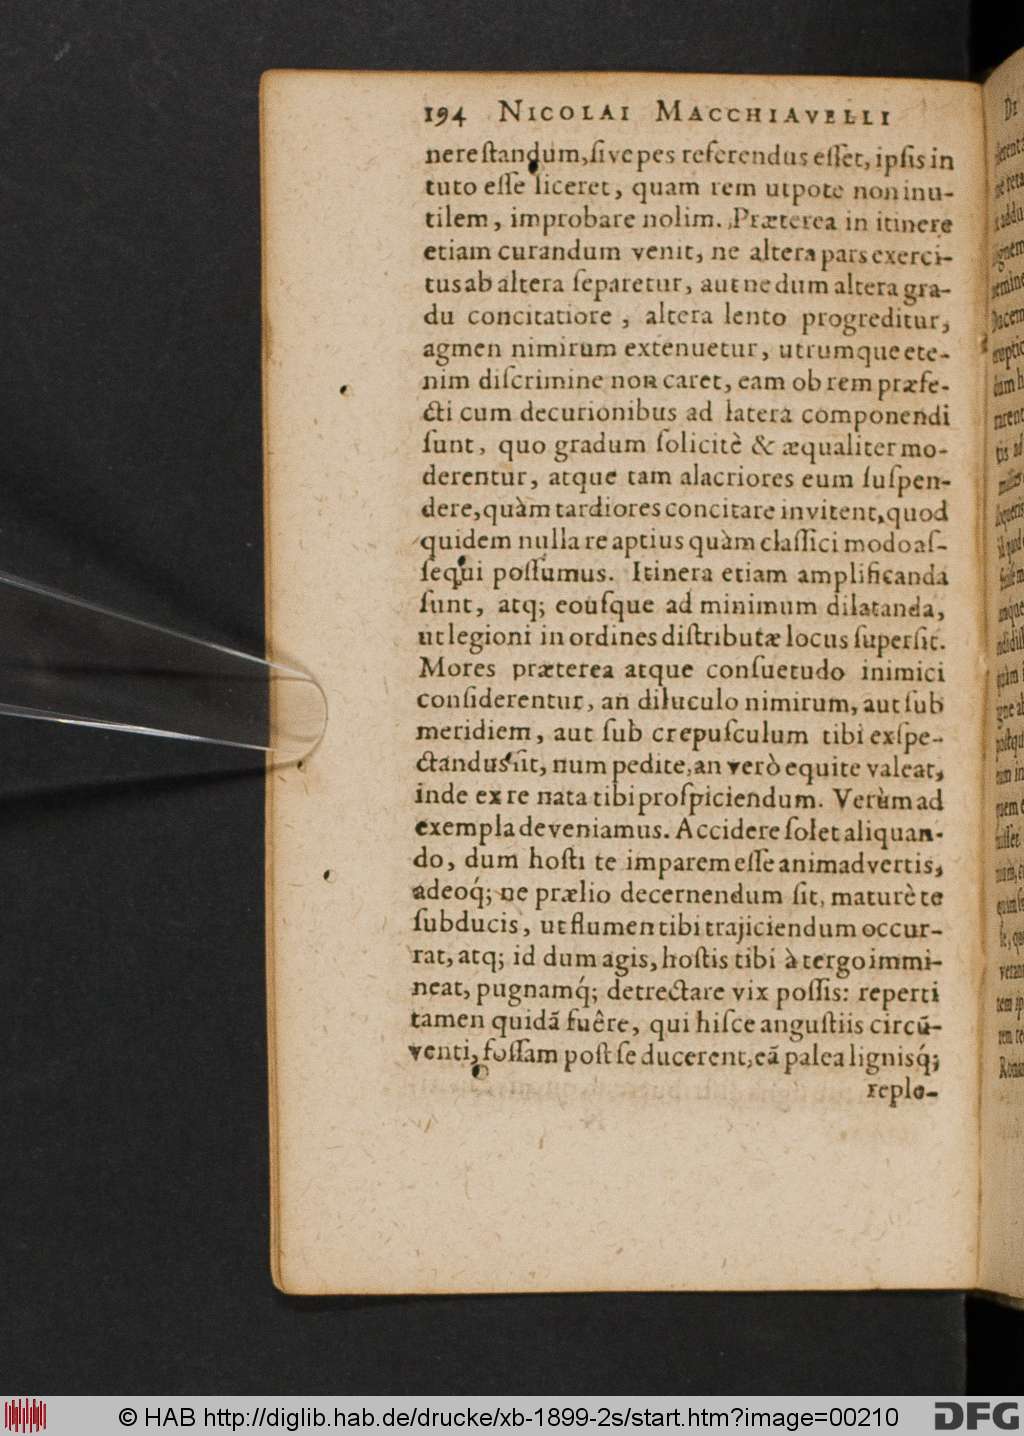 194 NICOLAI MACCHIAVELLI
nere ſtandum, ſive pes referendus eſſet, ipſis in
tuto eſſe liceret, quam rem utpote non inu-
tilem, improbare nolim. Præterea in itinere
etiam curandum venit, ne altera pars exerci-
tus ab altera ſeparetur, aut ne dum altera gra-
du concitatiore, altera lento progreditur,
agmen nimirum extenuetur, utrumque ete-
nim diſcrimine non caret, eam ob rem præfe-
cti cum decurionibus ad latera componendi
ſunt, quo gradum ſolicitè & æqualiter mo-
derentur, atque tam alacriores eum ſuſpen-
dere, quàm tardiores concitare invitent, quod
quidem nulla re aptius quàm claſſici modo aſ-
ſequi poſſumus. Itinera etiam amplificanda
ſunt, atq; eouſque ad minimum dilatanda,
ut legioni in ordines diſtributæ locus ſuperſit.
Mores præterea atque conſuetudo inimici
conſiderentur, an diluculo nimirum, aut ſub
meridiem, aut ſub crepuſculum tibi exſpe-
ctandus ſit, num pedite, an verò equite valeat,
inde ex re nata tibi proſpiciendum. Verùm ad
exempla deveniamus. Accidere ſolet aliquan-
do, dum hoſti te imparem eſſe animadvertis,
adeoq́; ne prælio decernendum ſit, maturè te
ſubducis, ut flumen tibi trajiciendum occur-
rat, atq; id dum agis, hoſtis tibi à tergo immi-
neat, pugnamq́; detrectare vix poſſis: reperti
tamen quidã fuêre, qui hiſce anguſtiis circũ-
venti, foſſam poſt ſe ducerent, eã palea lignisq́;
reple-
© HAB http://diglib.hab.de/drucke/xb-1899-2s/start.htm?image=00210
DFG